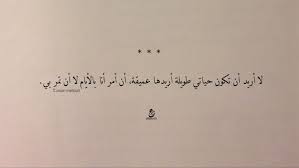 * * *
لا أريد أن تكون حياتي طويلة أريدها عميقة، أن أمر أنا بالأيام لا أن تمر بي.